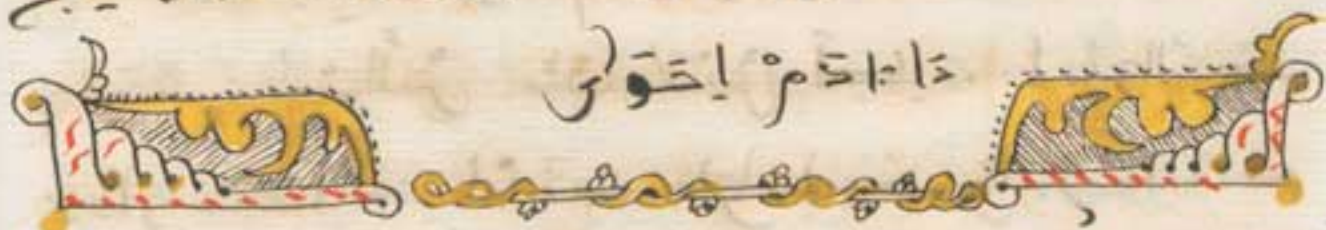 دَا ءَادَمْ اِحَوَى